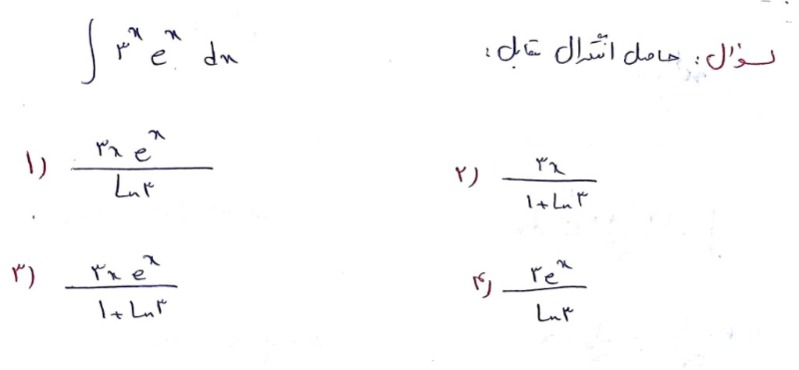 سؤال: حاصل انتگرال مقابل:
∫ ۳ˣ eˣ dx
۱) ۳x eˣ / Ln۳
۲) ۳x / ۱+Ln۳
۳) ۳x eˣ / ۱+Ln۳
۴) ۳eˣ / Ln۳